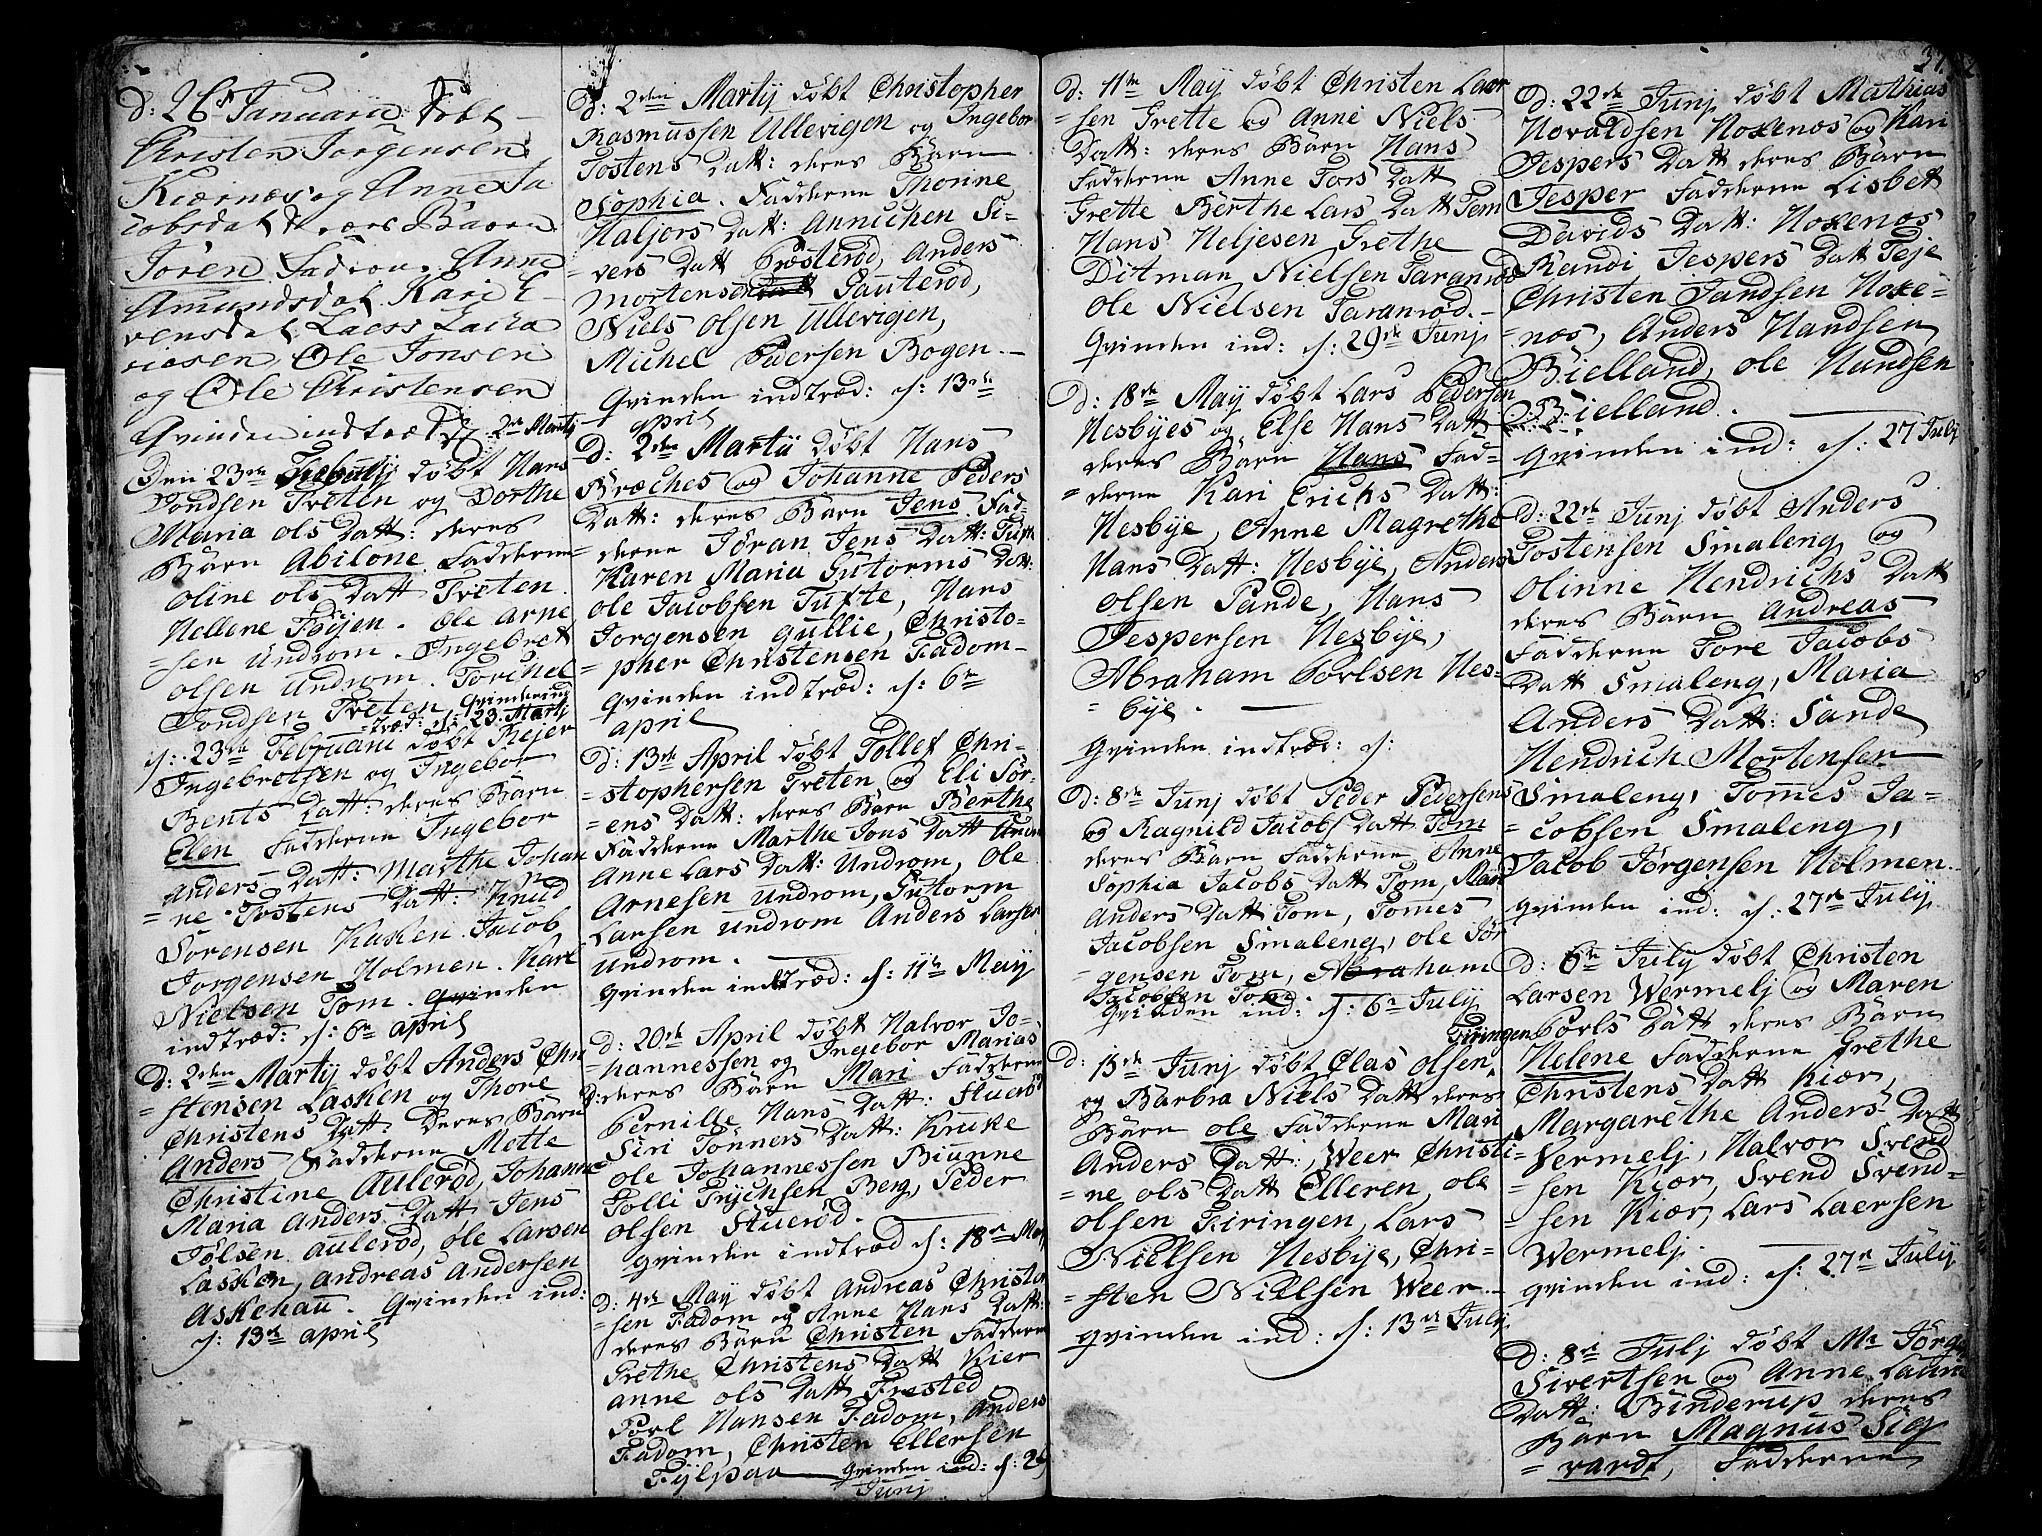 D: 26 Januarii Döbt
Christen Jorgensen
Kiærnæs og Anne Ja
cobsdat deres Barn
Joren Fadrou. Anne
Amundsdat. Kari E
vensdat Laers Zacha
riasen Ole Jonsen
og Ole Christensen
Qvinden indtræd d: 2den Martij
Den 23de Februarij döbt Hans
Jondsen Treten og Dorthe
Maria ols Datt: deres
Barn Abilone Fadderne
oline ols Datt Treten
Hellene Föyen. Ole Arne
=sen Undrom. Ingebret
olsen Undrom. Torchel
Jondsen Treten Qvinden ind
=træd: d: 23 Martj
d: 23de Februari döbt Rejer
Ingebretsen og Ingebor
Bents Datt: deres Barn
Elen Fadderne Ingebor
Anders Datt: Marthe Johan
=ne Tostens Datt: Knud
Sörensen Kasken. Jacob
Jorgensen Holmen. Karl
Nielsen Tom. Qvinden
indtræd: d: 6te april
D: 2den Martij döbt Anders Chri
=stensen Lasken og Thore
Christens Datt: Deres Barn
Anders Fadderne Mette
Christine Aulerød, Johanne
Maria Anders Datt Jens
Jölsen aulerød, ole Larsen
Lasken, andreas Andersen
Askehau. Qvinden ind:
d: 13de april
D: 2den Martij döbt Christopher
Rasmussen Ullevigen og Ingebor
Tostens Datt: deres Barn
Sophia. Fadderne Thorine
Haljors Datt: Annichen Si-
=vers Datt Præsterød, Anders
Mortensen Gauterød,
Niels Olsen Ullevigen,
Michel Pedersen Bogen.-
Qvinden indtræd: d: 13de
april
D: 2den Martij döbt Hans
Bræches og Johanne Peders
Datt: deres Barn Jens. Fad-
=derne Jöran Jens Datt: Tufte
Karen Maria Gutorms Datt:
ole Jacobsen Tufte, Hans
Jorgensen gullie, Christo-
=pher Christensen Fadom-
Qvinden indtræd: d: 6te
april
D: 13de April döbt Tollef Chri-
=stophersen Treten og Eli Sör-
=ens Datt: deres Barn Berthe
Fadderne Marthe Jons Datt
Anne Lars Datt: Undrom, Ole
Arnesen undrom, Gutorm
Larsen undrom Anders Larsen
undrom.
Qvinden indtræd: d: 11te May
D: 20de April döbt Halvor Jo-
hannessen og Ingebor Marias
D: deres Barn Mari Fadderne
Pernille Hans Datt:
Siri Tonners Datt: Kruke
ole Johannessen Biunne
Tolli Trÿchsen Berg, Peder
olsen Stuerød.
Qvinden indtræd d: 18de May
D: 4de May döbt Andreas Christo
sen Fadom og Anne Hans Datt:
deres Barn Christen Fadderne
Grethe Christens Datt Kier
anne ols Datt Frested
Porl Hansen Fadom, Anders
Fadom, Christen Ellersen
Fÿlpaa Qvinden ind: d: 29
Junj
D: 11te May döbt Christen Laer
=sen Grette og Anne Niels
Datt: deres Barn Hans
Fadderne Anne Tors Datt
Grette Berthe Lars Datt Tem
Hans Heljesen Grethe
Ditman Nielsen Taranrød
ole Nielsen Taranrød.-
Qvinden ind: d: 29de Junj
D: 18de May döbt Lars Pedersen
Nesbyes og Else Hans Datt
deres Barn Hans Fad-
=derne Kari Erichs Datt:
Nesbye, Anne Magrethe
Hans Datt: Nesbye, Anders
olsen Sande, Hans
Jespersen Nesbye,
Abraham Porlsen Nes-
=bye.
Qvinden indtræd: d:
D: 8de Junj döbt Peder Pedersens
og Ragnild Jacobs Datt Tom
deres Barn Fadderne Anne
Sophia Jacobs Datt Tom, Mari
Anders Datt Tom, Tomes
Jacobsen Smaleng, ole Jör
=gensen Tom, Abraham
Jacobsen Tom.
Qvinden ind: d: 6te July
D: 15de Junj döbt Clas olsen Giringen
og Barbra Niels Datt deres
Barn ole Fadderne Mari
Anders Datt:, Weer Christi-
=ne ols Datt Elleren, ole
olsen Giringen, Lars
Nielsen Nesbije, Chri-
=sten Nielsen Weer
qvinden ind: d: 13de July
37
D: 22de Junj döbt Mathias
Hovaldsen Noxenæs og Kari
Jespers Datt deres Barn
Jesper Fadderne Lisbet
Davids Datt: Noxenæs
Randi Jespers Datt Teje
Christen Tandsen Noxe-
=næs, Anders Handsen
Bielland, ole Handsen
Bielland.
Qvinden ind: d: 27 July
D: 22de Junj döbt Anders
Tostensen Smaleng og
Olinne Hendrichs Datt
deres Barn Andreas
Fadderne Tore Jacobs
Datt Smaleng, Maria
Anders Datt: Sande
Hendrich Mortensen
Smaleng, Tomes Ja-
=cobsen Smaleng,
Jacob Jörgensen Holmen.
Qvinden ind: d: 27de July
D: 6te July döbt Christen
Larsen Wermelj og Maren
Porls Datt deres Barn
Helene Fadderne Grethe
Christens Datt Kiær,
Margarethe Anders Datt
Vermelj, Halvor Svend
=sen Kiær, Svend Svend-
=sen Kiær, Lars Laersen
Wermelj.
qvinden ind: d: 27de July
D: 8de Julj döbt Mr Jörgen
Sivertsen og Anne Laurs
Datt: Binderup deres
Barn Magnus Sig
=vardt, Fadderne